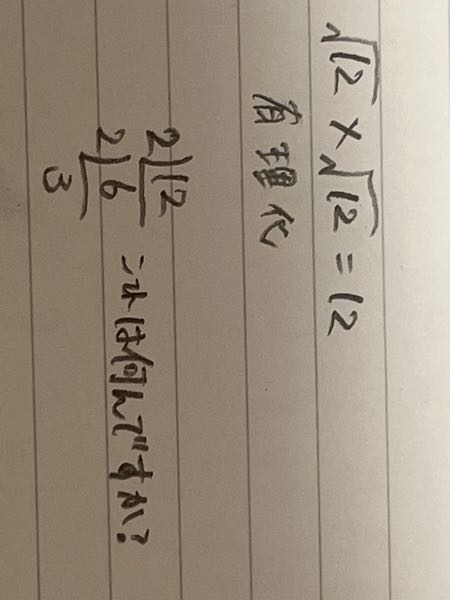 √12 × √12 = 12
有理化
2)12
2)6 これは何んですか?
3